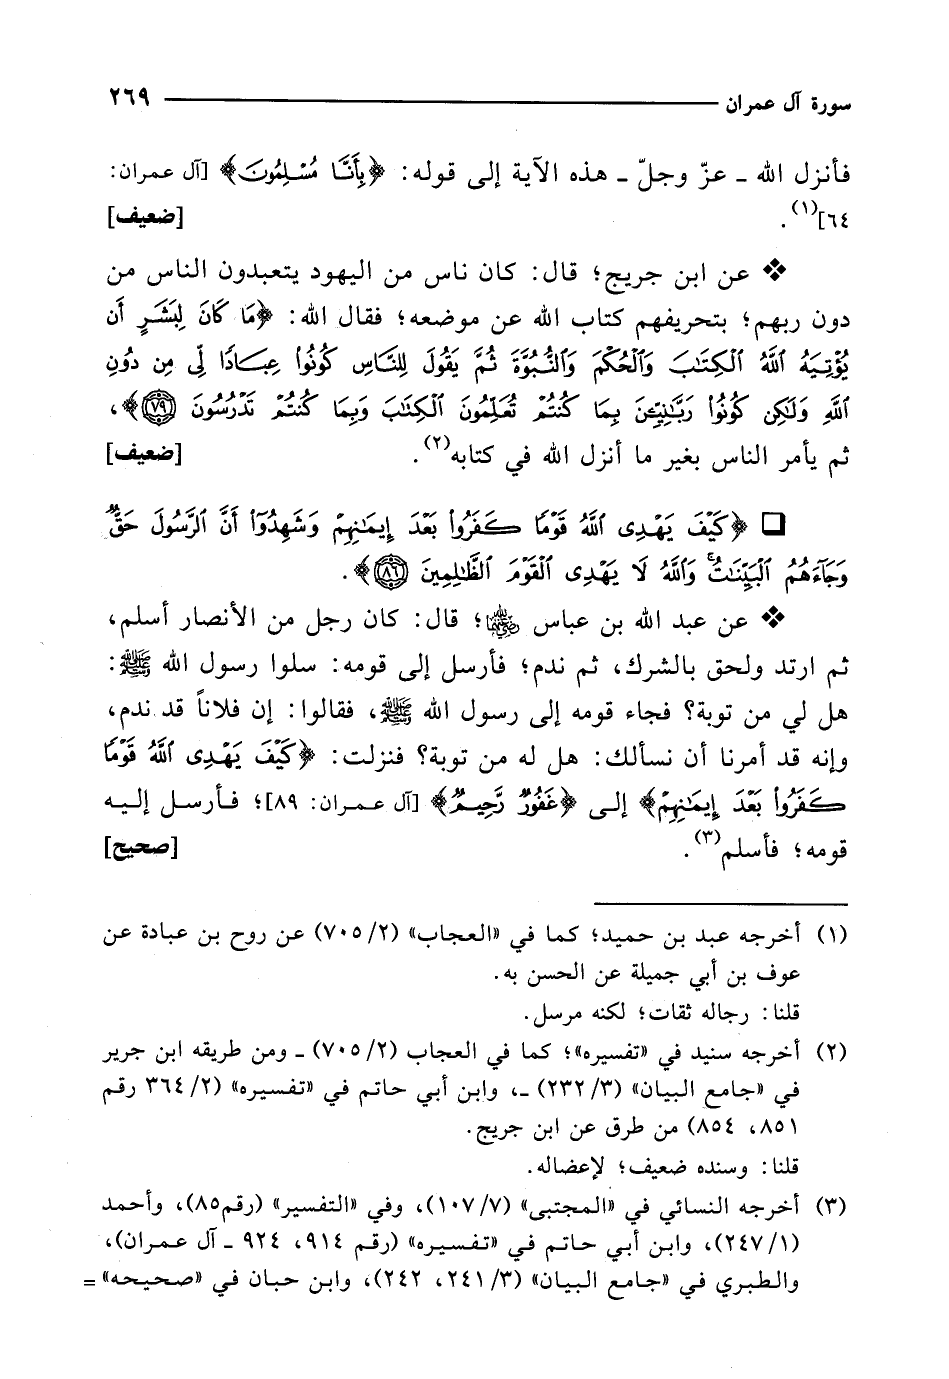 سورة آل عمران ٢٦٩
فأنزل الله ـ عزّ وجلّ ـ هذه الآية إلى قوله: ﴿بِأَنَّا مُسْلِمُونَ﴾ [آل عمران:
٦٤](١). [ضعيف]
❖ عن ابن جريج؛ قال: كان ناس من اليهود يتعبدون الناس من
دون ربهم؛ بتحريفهم كتاب الله عن موضعه؛ فقال الله: ﴿مَا كَانَ لِبَشَرٍ أَن
يُؤْتِيَهُ ٱللَّهُ ٱلْكِتَٰبَ وَٱلْحُكْمَ وَٱلنُّبُوَّةَ ثُمَّ يَقُولَ لِلنَّاسِ كُونُوا۟ عِبَادًا لِّى مِن دُونِ
ٱللَّهِ وَلَٰكِن كُونُوا۟ رَبَّٰنِيِّـۧنَ بِمَا كُنتُمْ تُعَلِّمُونَ ٱلْكِتَٰبَ وَبِمَا كُنتُمْ تَدْرُسُونَ ٧٩﴾،
ثم يأمر الناس بغير ما أنزل الله في كتابه(٢). [ضعيف]
❑ ﴿كَيْفَ يَهْدِى ٱللَّهُ قَوْمًا كَفَرُوا۟ بَعْدَ إِيمَٰنِهِمْ وَشَهِدُوٓا۟ أَنَّ ٱلرَّسُولَ حَقٌّ
وَجَآءَهُمُ ٱلْبَيِّنَٰتُ ۚ وَٱللَّهُ لَا يَهْدِى ٱلْقَوْمَ ٱلظَّٰلِمِينَ ٨٦﴾.
❖ عن عبد الله بن عباس رضي الله عنهما؛ قال: كان رجل من الأنصار أسلم،
ثم ارتد ولحق بالشرك، ثم ندم؛ فأرسل إلى قومه: سلوا رسول الله ﷺ:
هل لي من توبة؟ فجاء قومه إلى رسول الله ﷺ، فقالوا: إن فلاناً قد ندم،
وإنه قد أمرنا أن نسألك: هل له من توبة؟ فنزلت: ﴿كَيْفَ يَهْدِى ٱللَّهُ قَوْمًا
كَفَرُوا۟ بَعْدَ إِيمَٰنِهِمْ﴾ إلى ﴿غَفُورٌ رَّحِيمٌ﴾ [آل عمران: ٨٩]؛ فأرسل إليه
قومه؛ فأسلم(٣). [صحيح]
(١) أخرجه عبد بن حميد؛ كما في «العجاب» (٢/ ٧٠٥) عن روح بن عبادة عن
عوف بن أبي جميلة عن الحسن به.
قلنا: رجاله ثقات؛ لكنه مرسل.
(٢) أخرجه سنيد في «تفسيره»؛ كما في العجاب (٢/ ٧٠٥) ـ ومن طريقه ابن جرير
في «جامع البيان» (٣/ ٢٣٢) ـ، وابن أبي حاتم في «تفسيره» (٢/ ٣٦٤ رقم
٨٥١، ٨٥٤) من طرق عن ابن جريج.
قلنا: وسنده ضعيف؛ لإعضاله.
(٣) أخرجه النسائي في «المجتبى» (٧/ ١٠٧)، وفي «التفسير» (رقم٨٥)، وأحمد
(١/ ٢٤٧)، وابن أبي حاتم في «تفسيره» (رقم ٩١٤، ٩٢٤ ـ آل عمران)،
والطبري في «جامع البيان» (٣/ ٢٤١، ٢٤٢)، وابن حبان في «صحيحه» =